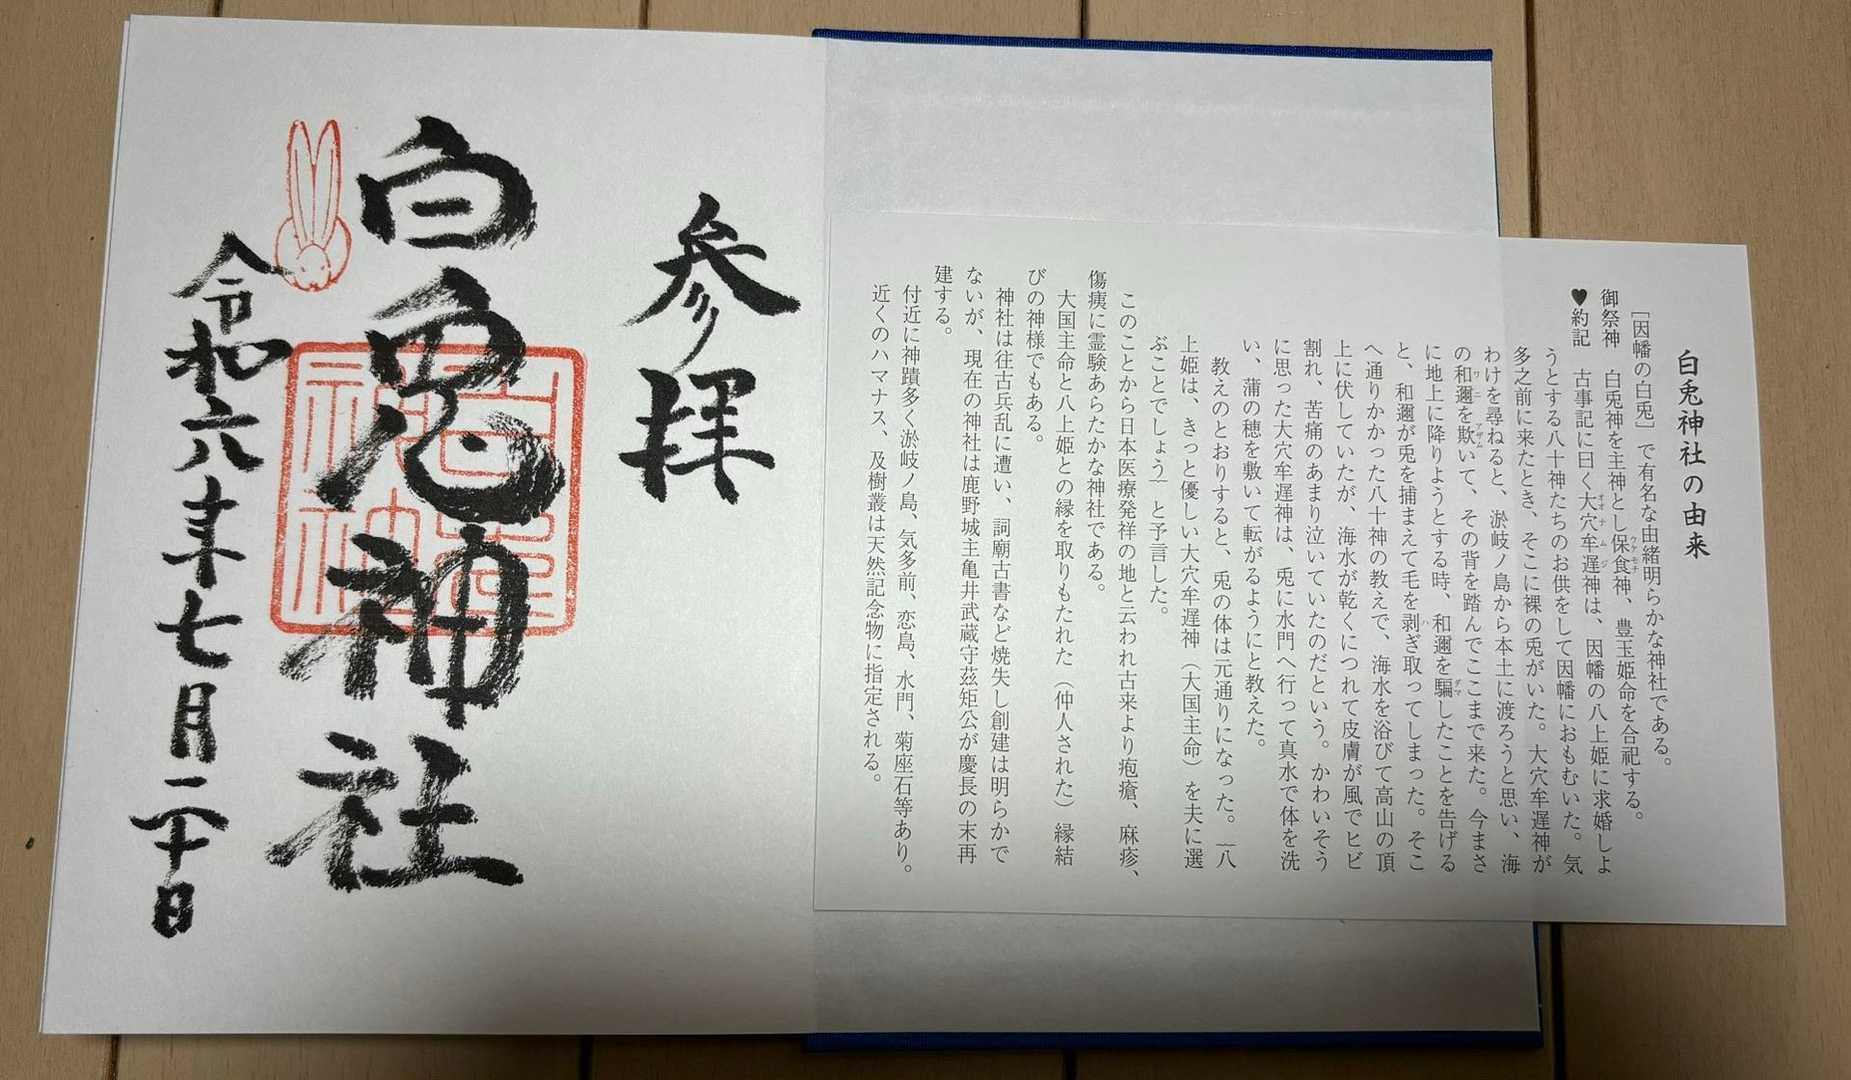 白兎神社の由来
［因幡の白兎］で有名な由緒明らかな神社である。
御祭神　白兎神を主神とし保食神、豊玉姫命を合祀する。
ウケモチ
♥約記　古事記に曰く大穴牟遅神は、因幡の八上姫に求婚しよ
オオナムジ
うとする八十神たちのお供をして因幡におもむいた。気
多之前に来たとき、そこに裸の兎がいた。大穴牟遅神が
わけを尋ねると、淤岐ノ島から本土に渡ろうと思い、海
の和邇を欺いて、その背を踏んでここまで来た。今まさ
ワニ
アザム
に地上に降りようとする時、和邇を騙したことを告げる
ダマ
と、和邇が兎を捕まえて毛を剥ぎ取ってしまった。そこ
ハ
へ通りかかった八十神の教えで、海水を浴びて高山の頂
上に伏していたが、海水が乾くにつれて皮膚が風でヒビ
割れ、苦痛のあまり泣いていたのだという。かわいそう
に思った大穴牟遅神は、兎に水門へ行って真水で体を洗
い、蒲の穂を敷いて転がるようにと教えた。
教えのとおりすると、兎の体は元通りになった。「八
上姫は、きっと優しい大穴牟遅神（大国主命）を夫に選
ぶことでしょう」と予言した。
このことから日本医療発祥の地と云われ古来より疱瘡、麻疹、
傷痍に霊験あらたかな神社である。
大国主命と八上姫との縁を取りもたれた（仲人された）縁結
びの神様でもある。
神社は往古兵乱に遭い、詞廟古書など焼失し創建は明らかで
ないが、現在の神社は鹿野城主亀井武蔵守茲矩公が慶長の末再
建する。
付近に神蹟多く淤岐ノ島、気多前、恋島、水門、菊座石等あり。
近くのハマナス、及樹叢は天然記念物に指定される。
参拝
白兎神社
令和六年七月二十日